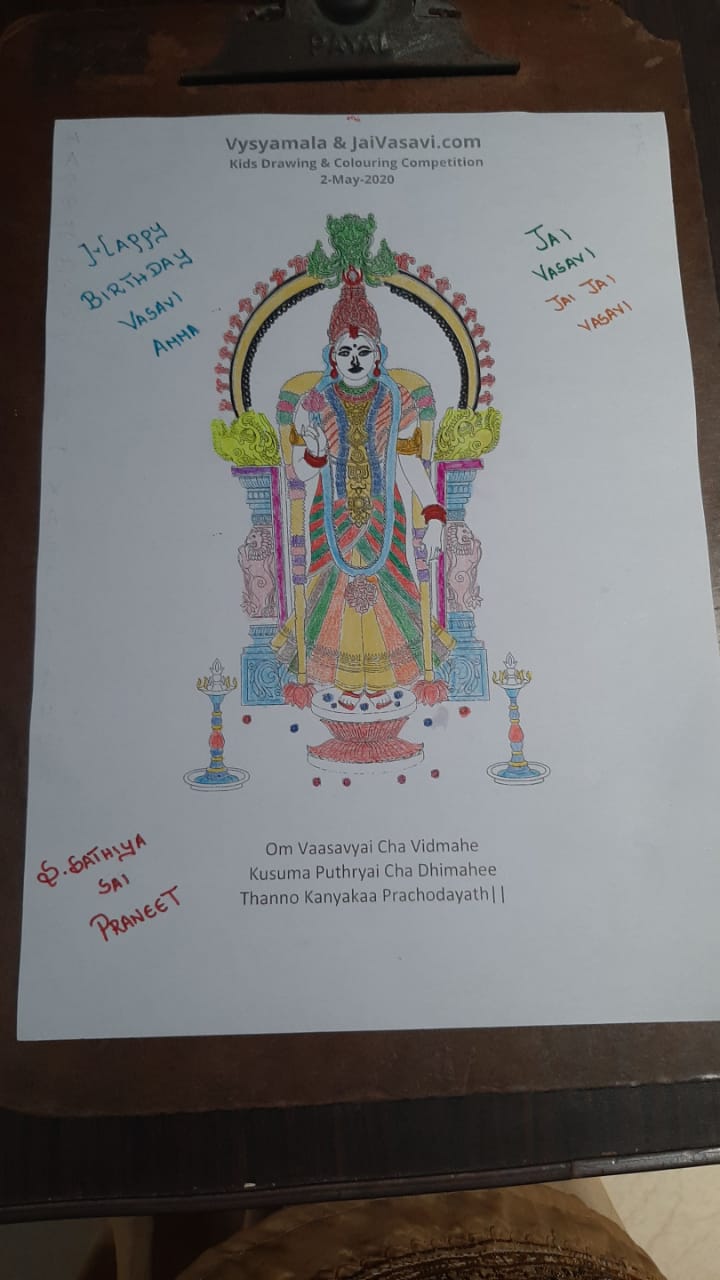 PAYAL
Vysyamala & JaiVasavi.com
Kids Drawing & Colouring Competition
2-May-2020
HAPPY
BIRTHDAY
VASAVI
AMMA
JAI
VASAVI
JAI JAI
VASAVI
Om Vaasavyai Cha Vidmahe
Kusuma Puthryai Cha Dhimahee
Thanno Kanyakaa Prachodayath||
S.SATHIYA
SAI
PRANEET